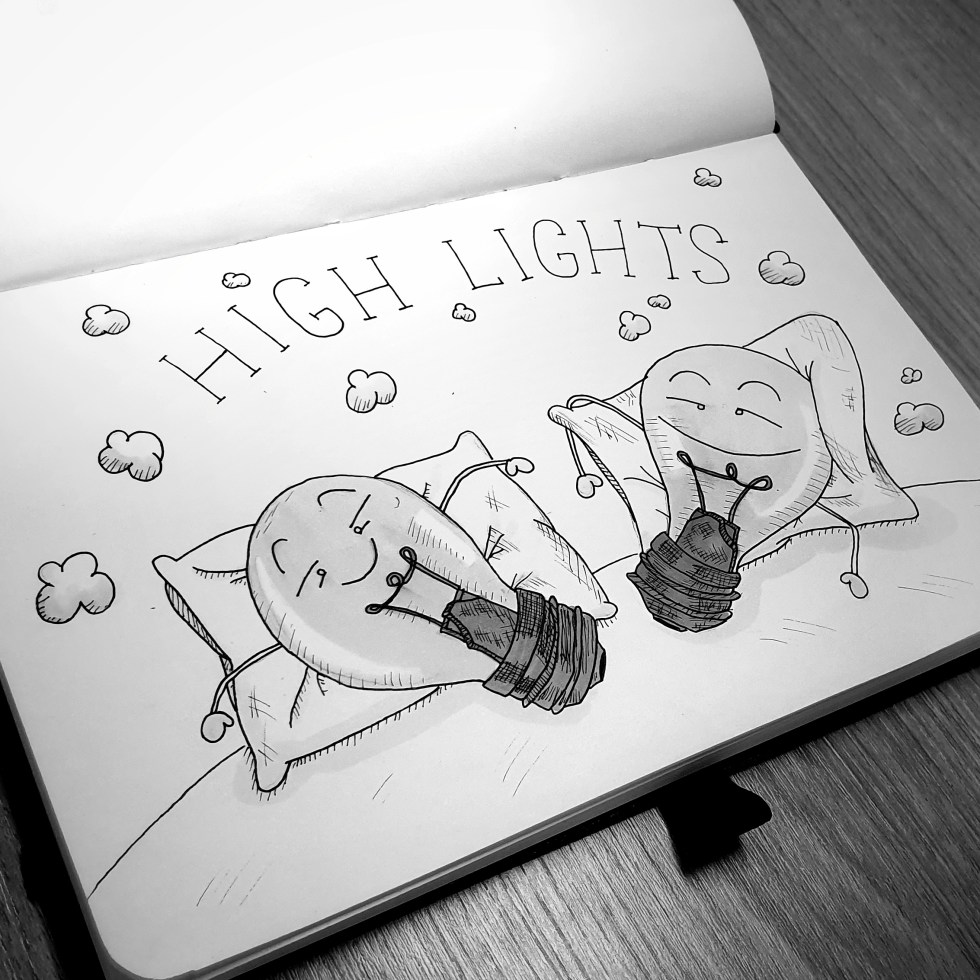 HIGH LIGHTS